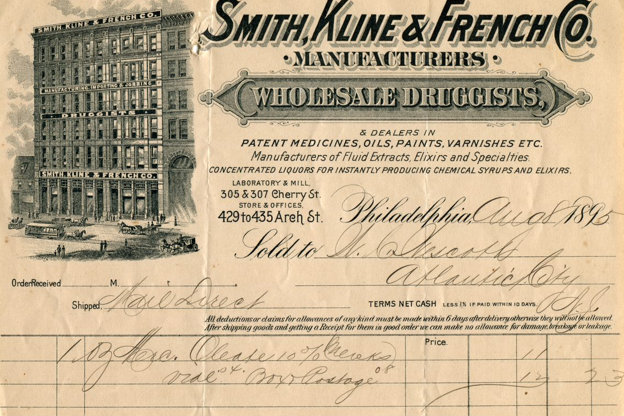 SMITH, KLINE & FRENCH CO.
MANUFACTURING, IMPORTING & JOBBING
DRUGGISTS
SMITH, KLINE & FRENCH CO.
SMITH, KLINE & FRENCH CO.
·MANUFACTURERS·
WHOLESALE DRUGGISTS,
& DEALERS IN
PATENT MEDICINES, OILS, PAINTS, VARNISHES ETC.
Manufacturers of Fluid Extracts, Elixirs and Specialties.
CONCENTRATED LIQUORS FOR INSTANTLY PRODUCING CHEMICAL SYRUPS AND ELIXIRS.
LABORATORY & MILL,
305 & 307 Cherry St.
STORE & OFFICES,
429 to 435 Arch St.
Philadelphia, Aug 8 1895
Sold to W.
Atlantic City
Order Received M.
N.J.
Shipped Mail Direct
TERMS NET CASH LESS 1% IF PAID WITHIN 10 DAYS.
All deductions or claims for allowances of any kind must be made within 6 days after delivery, otherwise they will not be allowed.
After shipping goods and getting a Receipt for them in good order we can make no allowance for damage, breakage or leakage.
Price.
1 oz Merc. Oleate 10% 11
vial 04 Box & Postage 08 12 23